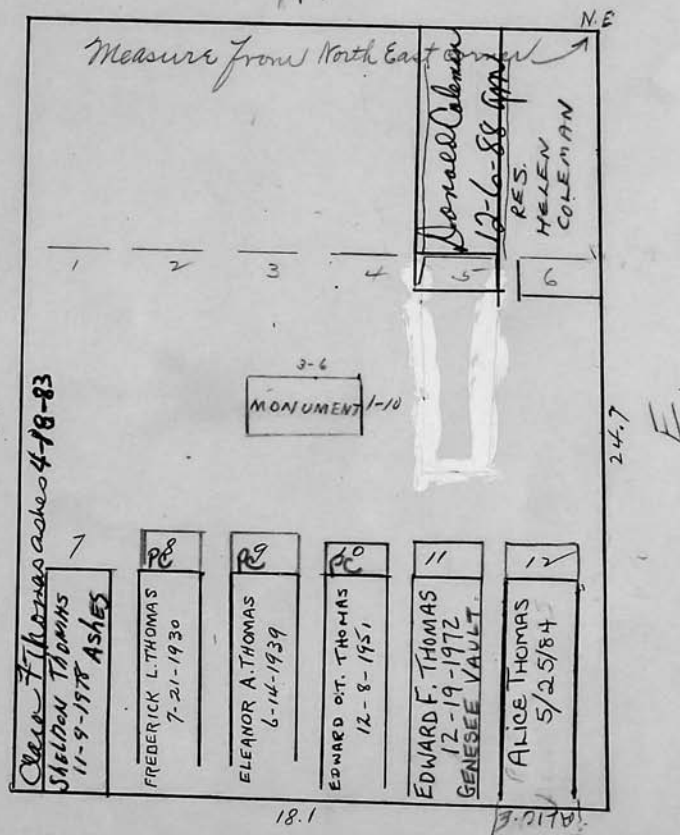 N.E
Measure from North East corner
Donald Coleman
12-6-88
RES.
HELEN
COLEMAN
1
2
3
4
5
6
3-6
MONUMENT 1-10
24.7
E
Clara F Thomas ashes 4-18-83
7
SHELDON THOMAS
11-9-1978 ASHES
PC 8
FREDERICK L. THOMAS
7-21-1930
PC 9
ELEANOR A. THOMAS
6-14-1939
PC 10
EDWARD O.T. THOMAS
12-8-1951
11
EDWARD F. THOMAS
12-19-1972
GENESEE VAULT.
12
ALICE THOMAS
5/25/84
18.1